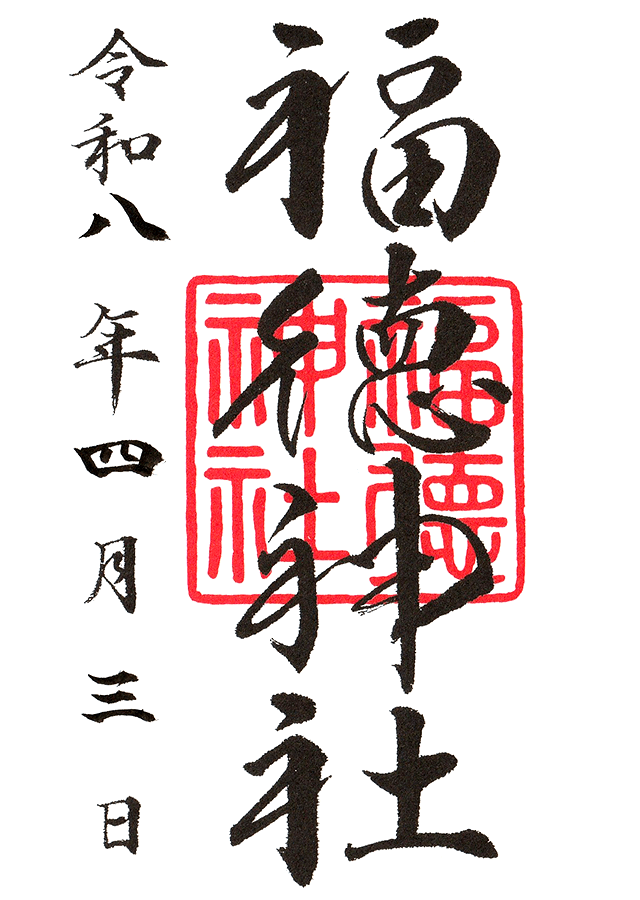 福徳神社
福徳神社
令和八年四月三日